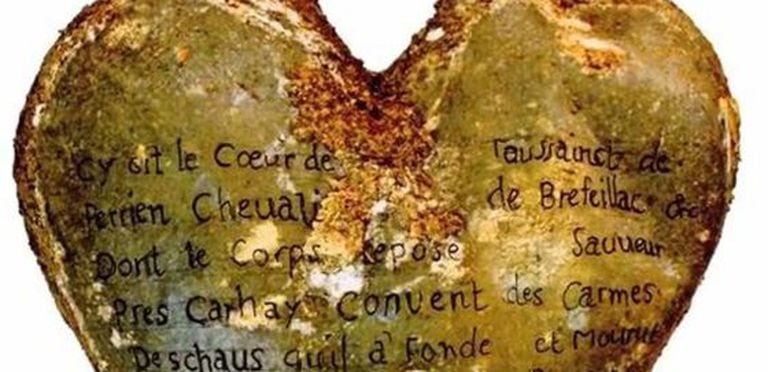 Cy Git le Cœur de Toussainct de
Perrien Cheuali de Brefeillac
Dont le Corps repose Sauueur
Pres Carhay Convent des Carmes
Deschaus quil a Fonde et Mourut